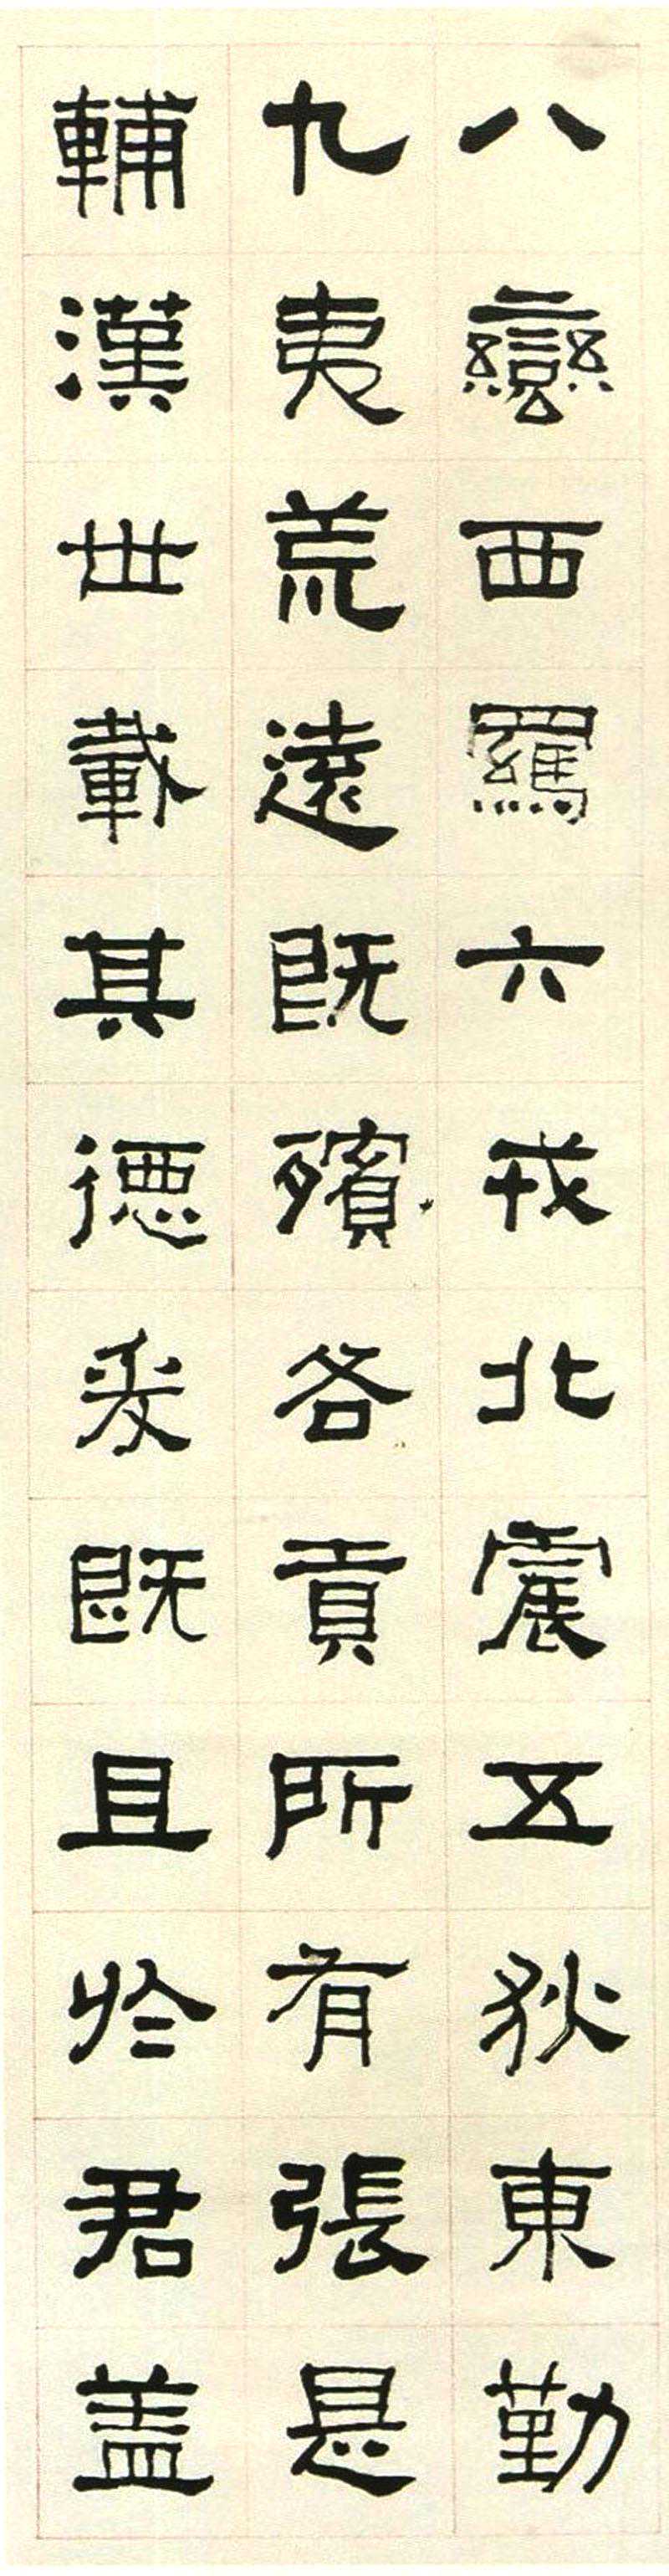 八蠻西羈六戎北震五狄東勤
九夷荒遠既殯各貢所有張是
輔漢世載其德爰既且於君盖